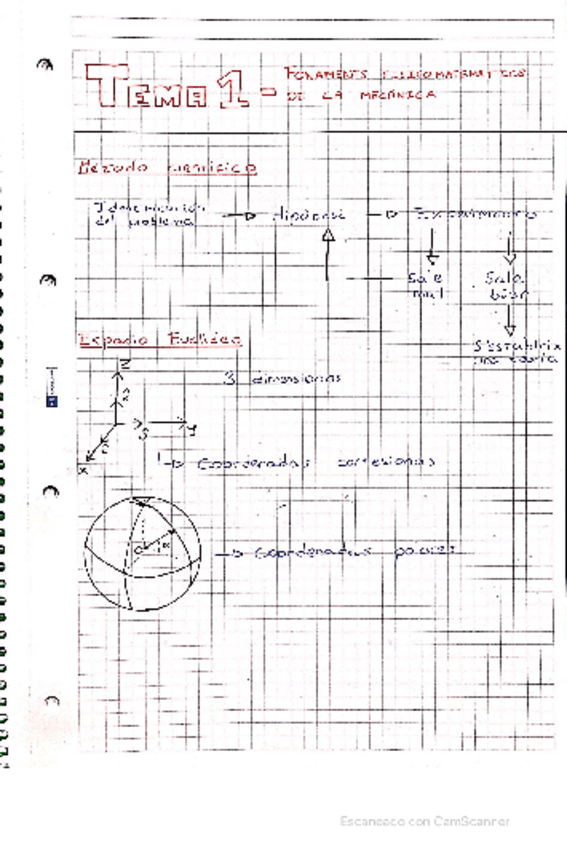 TEMA 1 - FONAMENTS FISICOMATEMATICOS
DE LA MECÁNICA
Método científico
Identificación
del problema
Hipótesis
Experimento
Sale
mal
Sale
bien
S'establix
una teoria
Espacio Euclídeo
z
3 dimensiones
y
x
Coordenadas cartesianas
Coordenadas polares
Escaneado con CamScanner